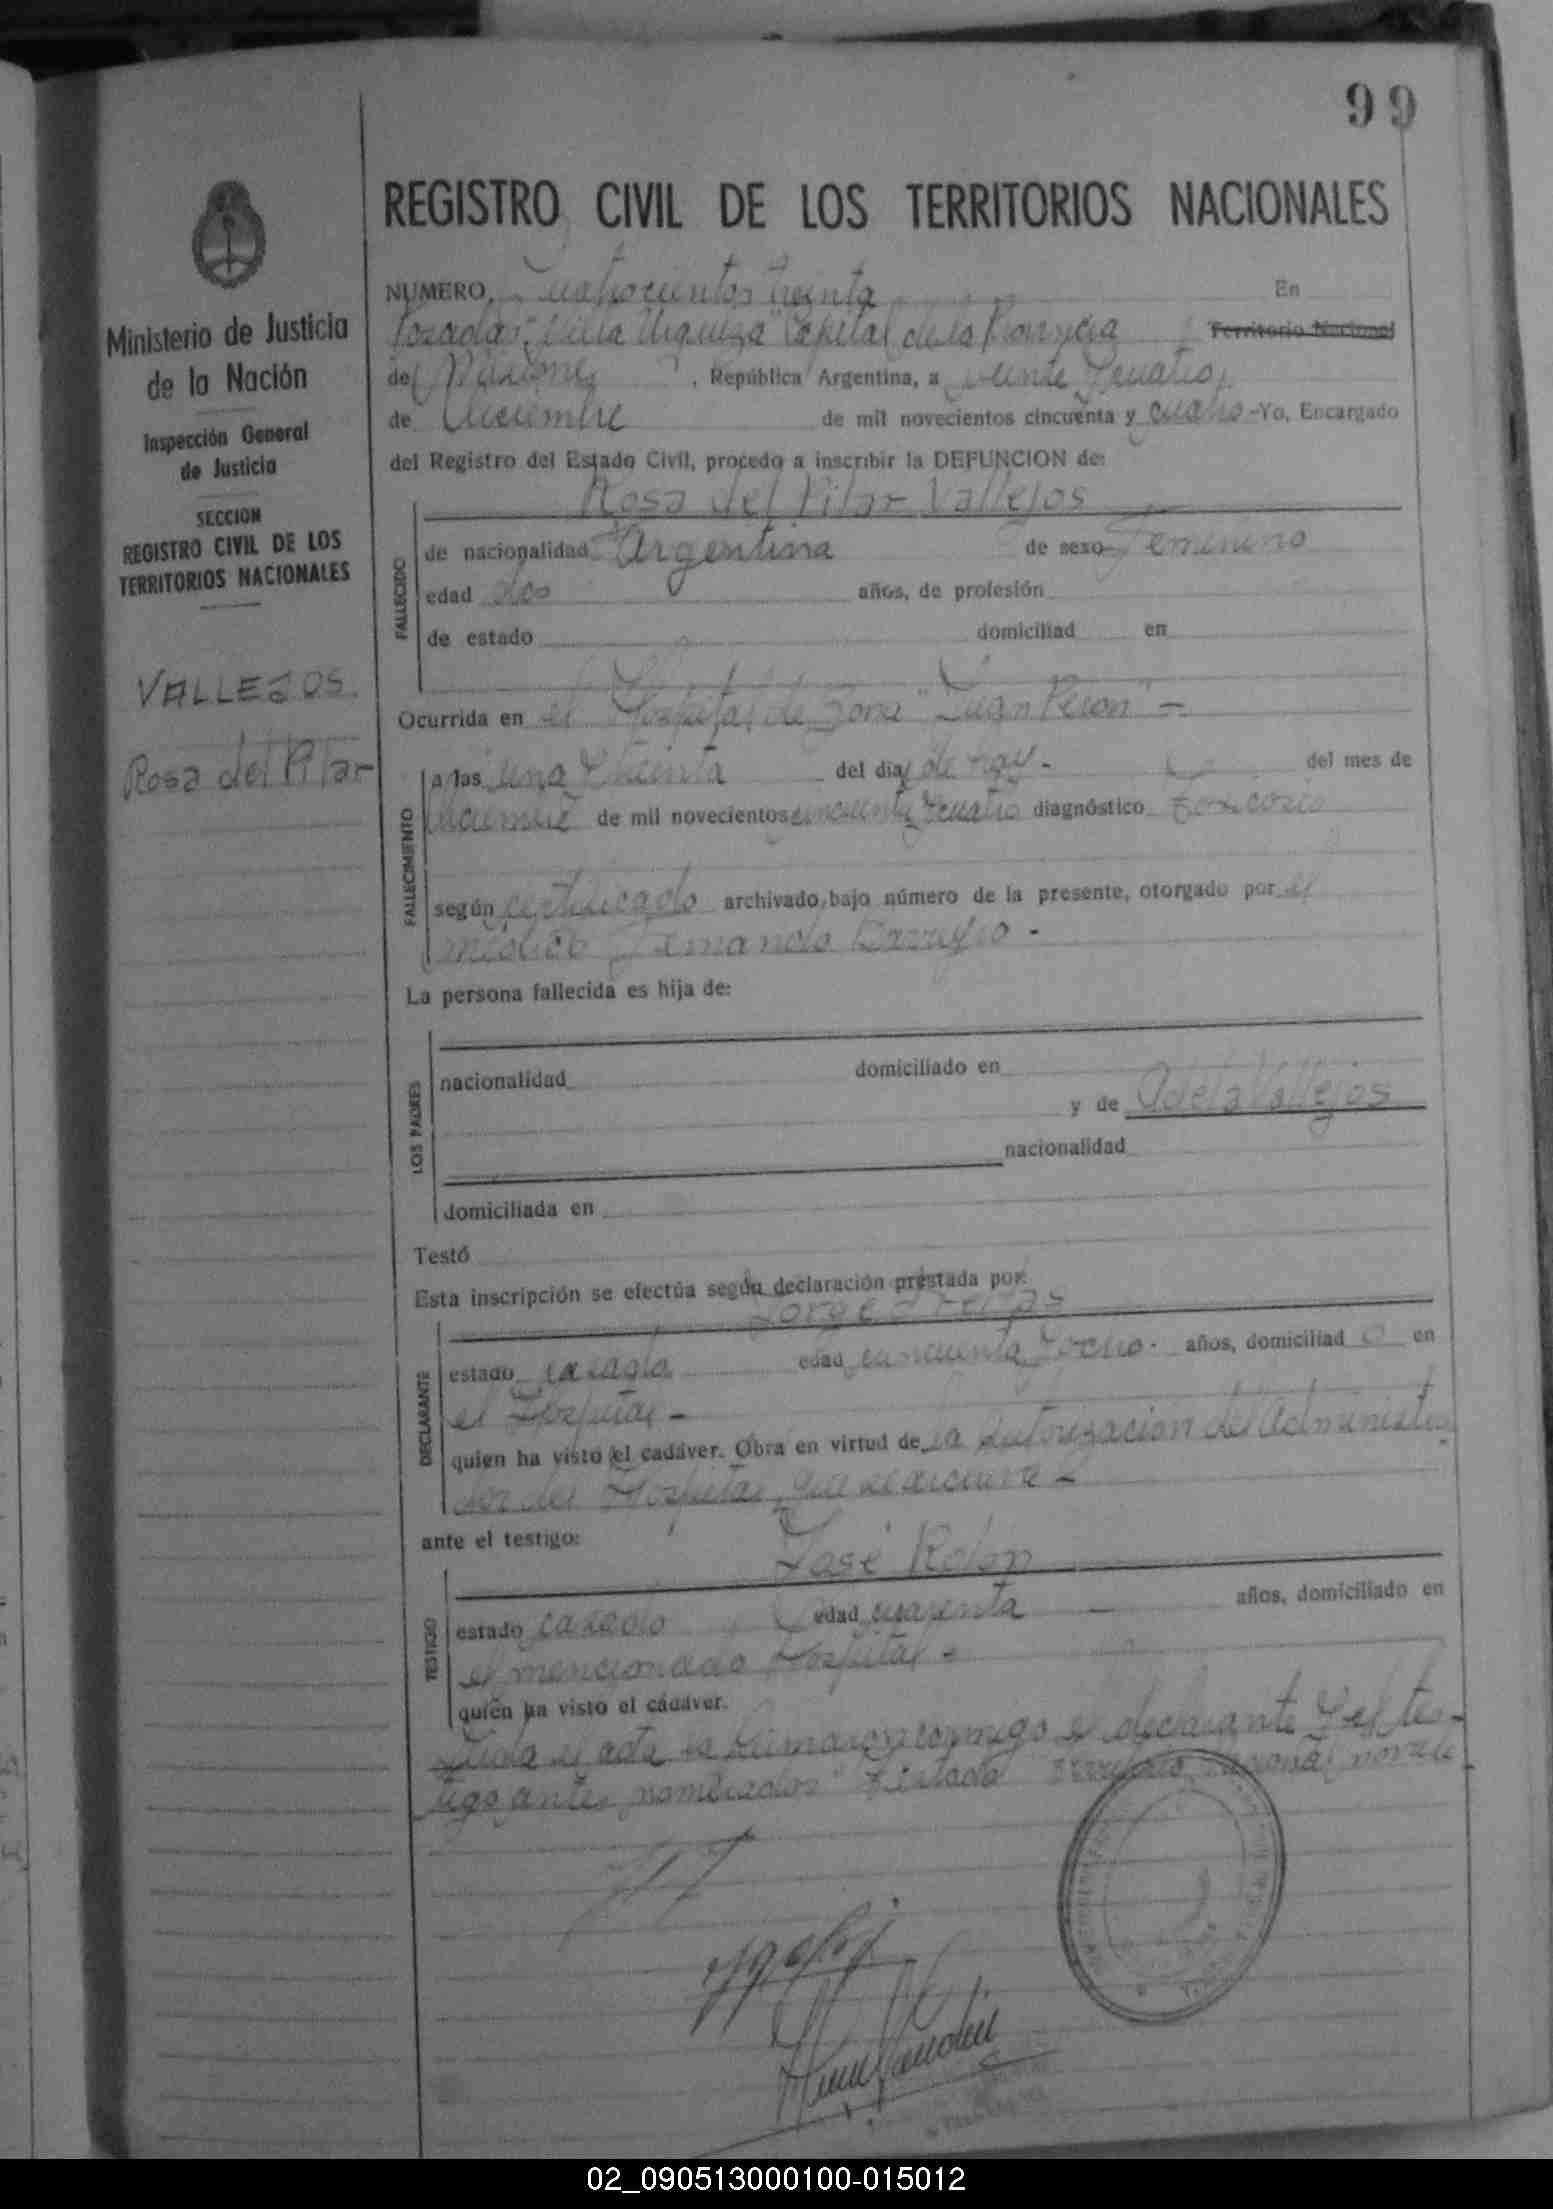 99
REGISTRO CIVIL DE LOS TERRITORIOS NACIONALES
Ministerio de Justicia
de la Nación
Inspección General
de Justicia
SECCION
REGISTRO CIVIL DE LOS
TERRITORIOS NACIONALES
VALLEJOS
Rosa del Pilar
NUMERO, Cuatrocientos treinta En
Posadas "Villa Urquiza" Capital de la Provincia Territorio Nacional
de Misiones, República Argentina, a veinte y cuatro
de Diciembre de mil novecientos cincuenta y cuatro -Yo, Encargado
del Registro del Estado Civil, procedo a inscribir la DEFUNCION de:
Rosa del Pilar Vallejos
FALLECIDO
de nacionalidad Argentina de sexo Femenino
edad dos años, de profesión
de estado domiciliad en
Ocurrida en el Hospital de Zona "Juan Perón" -
FALLECIMIENTO
a las una y treinta del día de hoy - del mes de
diciembre de mil novecientos cincuenta y cuatro diagnóstico toxicosis
según certificado archivado bajo número de la presente, otorgado por el
médico Fernando Barreyro -
La persona fallecida es hija de:
LOS PADRES
nacionalidad domiciliado en
y de Adela Vallejos
nacionalidad
domiciliada en
Testó
Esta inscripción se efectúa según declaración prestada por:
Jorge
DECLARANTE
estado casado edad cincuenta y ocho - años, domiciliado en
el Hospital -
quien ha visto el cadáver. Obra en virtud de la autorización del Administra
dor del Hospital, que se archiva -
ante el testigo:
José Rolón
TESTIGO
estado casado edad cuarenta - años, domiciliado en
el mencionado Hospital -
quien ha visto el cadáver.
Leída el acta la firmaron conmigo el declarante y el tes-
tigo antes nombrados "Testado Territorio Nacional no vale
02_090513000100-015012